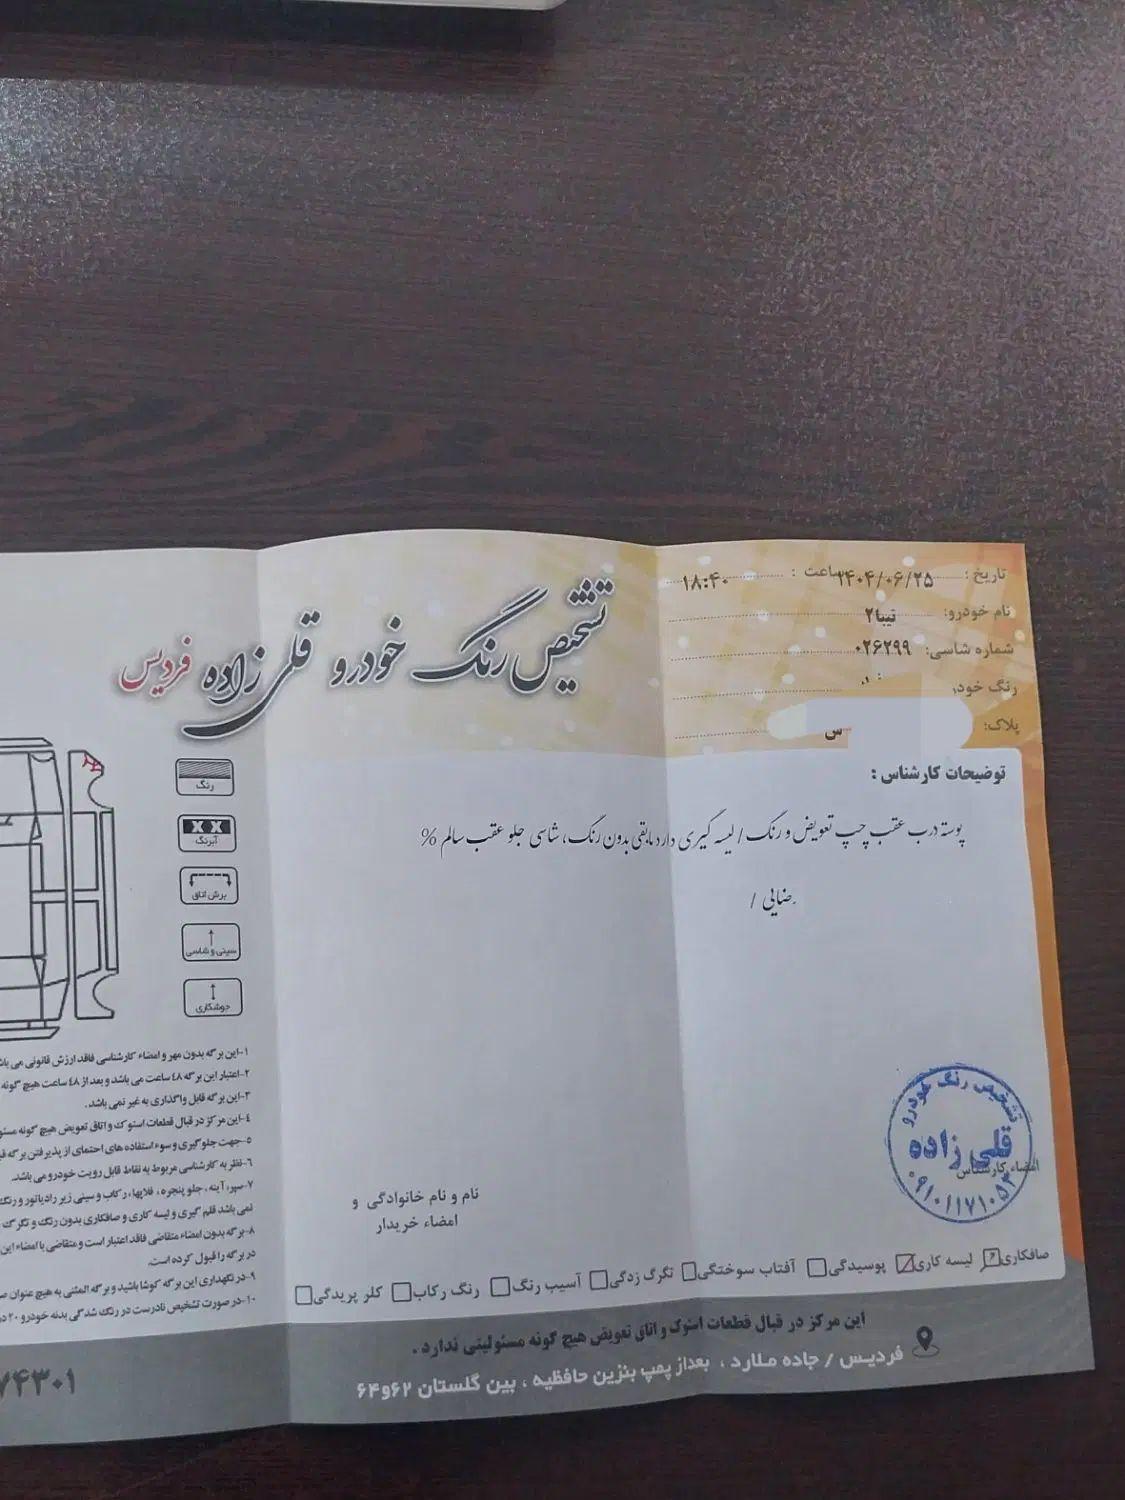 تاریخ: ۱۴۰۴/۰۶/۲۵ ساعت: ۱۸:۴۰
نام خودرو: تیبا۲
شماره شاسی: ۰۲۶۲۹۹
رنگ خود
پلاک: س
تشخیص رنگ خودرو قلی زاده فردیس
توضیحات کارشناس:
پوسته درب عقب چپ تعویض و رنگ / لیسه گیری دارد مابقی بدون رنگ، شاسی جلو عقب سالم %
رضایی /
رنگ
XX
آبرنگ
برش اتاق
سینی و شاسی
جوشکاری
۱-این برگه بدون مهر و امضاء کارشناسی فاقد ارزش قانونی می باش
۲-اعتبار این برگه ۴۸ ساعت می باشد و بعد از ۴۸ ساعت هیچ گونه
۳-این برگه قابل واگذاری به غیر نمی باشد.
۴-این مرکز در قبال قطعات استوک و اتاق تعویض هیچ گونه مسئو
۵-جهت جلوگیری و سوء استفاده های احتمای از پذیرفتن برگه
۶-نظر به کارشناسی مربوط به نقاط قابل رویت خودرو می باشد.
۷-سپر، آینه، جلو پنجره، قلاپها، رکاب و سینی زیر رادیاتور و رنگ
نمی باشد قلم گیری و لیسه کاری و صافکاری بدون رنگ و تگرگ
۸-برگه بدون امضاء متقاضی فاقد اعتبار است و متقاضی با امضاء این
در برگه را قبول کرده است.
۹-در نگهداری این برگه کوشا باشید و برگه المثنی به هیچ عنوان
۱۰-در صورت تشخیص نادرست در رنگ شدگی بدنه خودرو ۲۰
نام و نام خانوادگی و
امضاء خریدار
تشخیص رنگ خودرو
قلی زاده
۰۹۱۰۱۱۷۱۰۵۴
امضاء کارشناس
صافکاری لیسه کاری پوسیدگی آفتاب سوختگی تگرگ زدگی آسیب رنگ رنگ رکاب کلر پریدگی
این مرکز در قبال قطعات استوک و اتاق تعویض هیچ گونه مسئولیتی ندارد.
فردیس / جاده ملارد، بعداز پمپ بنزین حافظیه، بین گلستان ۶۲و۶۴
۷۴۳۰۱